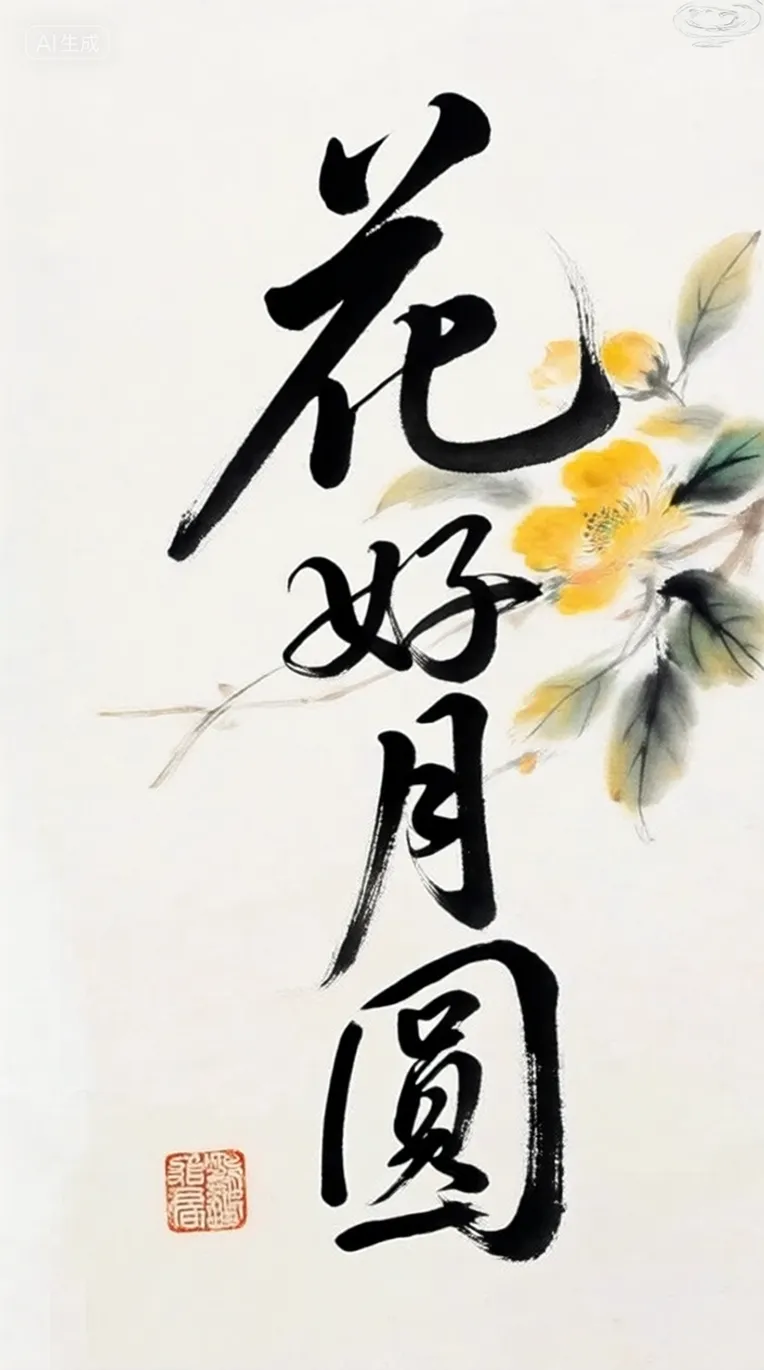 AI生成
花好月圓